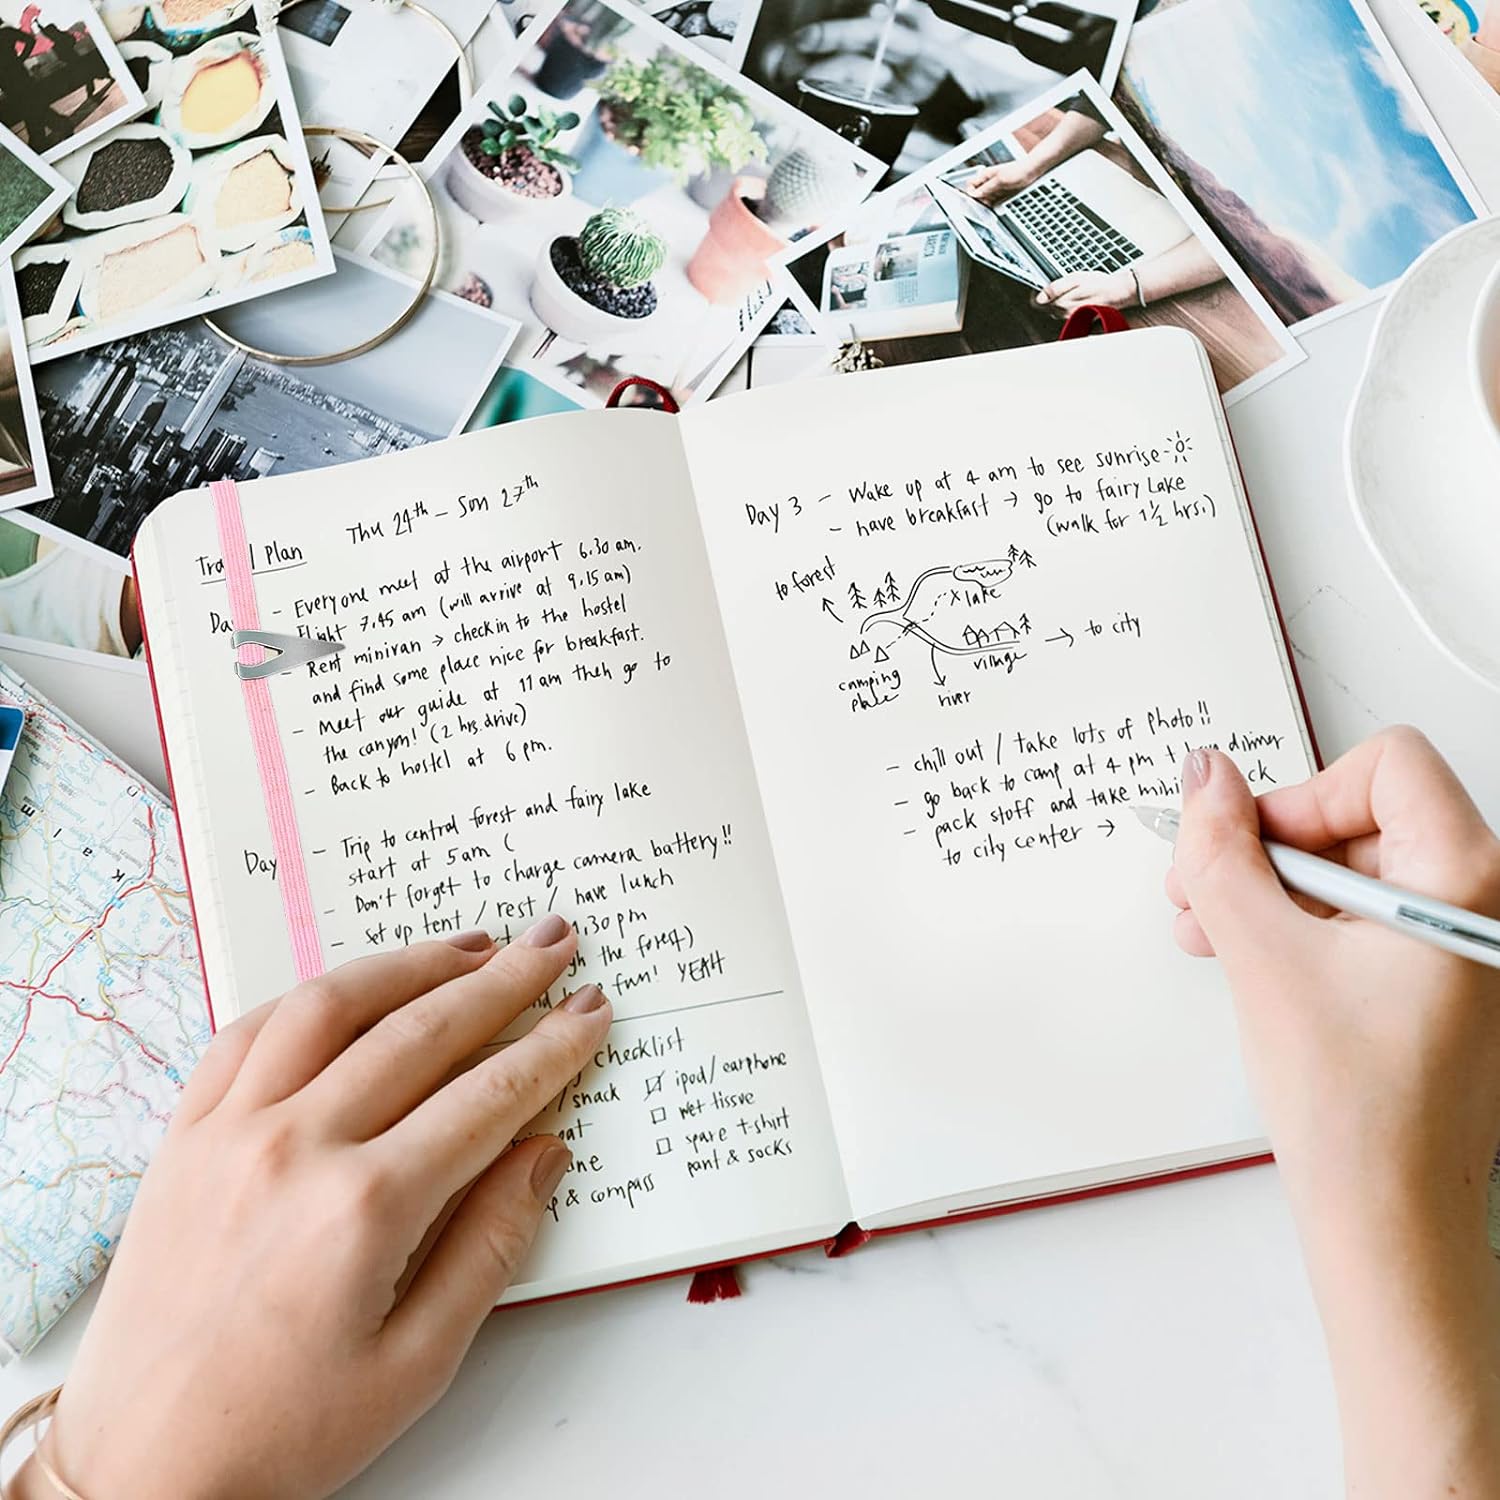 Thu 24th - Sun 27th
Travel Plan
Day - Everyone meet at the airport 6.30 am.
- Flight 7.45 am (will arrive at 9.15 am)
- Rent minivan → check in to the hostel
and find some place nice for breakfast.
- Meet our guide at 11 am then go to
the canyon! (2 hrs. drive)
- Back to hostel at 6 pm.
Day - Trip to central forest and fairy lake
start at 5 am (
- Don't forget to charge camera battery!!
- Set up tent / rest / have lunch
1.30 pm
the forest)
fun! YEAH
checklist
/ snack
& compass
ipod / earphone
wet tissue
spare t-shirt
pant & socks
Day 3 - Wake up at 4 am to see sunrise
- have breakfast → go to fairy Lake
(walk for 1 1/2 hrs.)
to forest
x lake
→ to city
village
camping
place
river
- chill out / take lots of photo!!
- go back to camp at 4 pm + have dinner
- pack stoff and take
to city center →